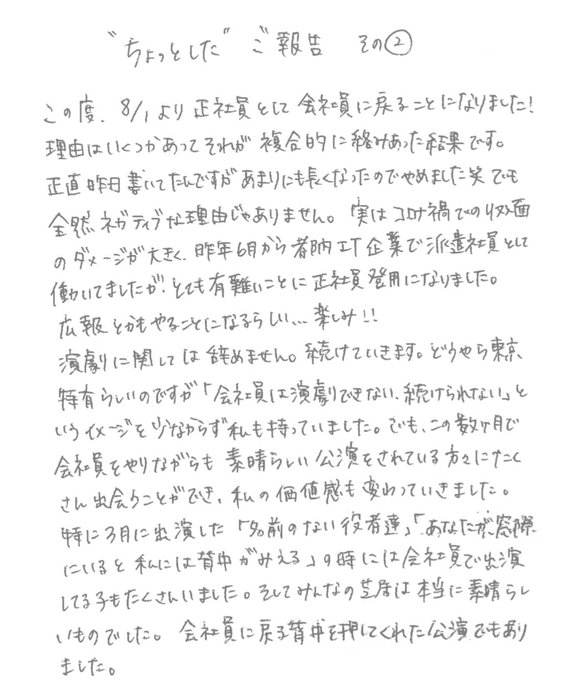 "ちょっとした" ご報告 その②
この度、8/1より正社員として会社員に戻ることになりました!
理由はいくつかあってそれが複合的に絡みあった結果です。
正直昨日書いてたんですがあまりにも長くなったのでやめました笑 でも
全然ネガティブな理由じゃありません。実はコロナ禍での収入面
のダメージが大きく、昨年6月から都内IT企業で派遣社員として
働いてましたが、とても有難いことに正社員登用になりました。
広報とかもやることになるらしい... 楽しみ!!
演劇に関しては辞めません。続けていきます。どうやら東京
特有らしいのですが「会社員は演劇できない、続けられない」と
いうイメージを少なからず私も持っていました。でも、この数ヶ月で
会社員をやりながらも素晴らしい公演をされている方々にたく
さん出会うことができ、私の価値感も変わっていきました。
特に3月に出演した「名前のない役者達」「あなたが窓際
にいると私には背中がみえる」の時には会社員で出演
してる子もたくさんいました。そしてみんなの芝居は本当に素晴らし
いものでした。会社員に戻る背中を押してくれた公演でもあり
ました。